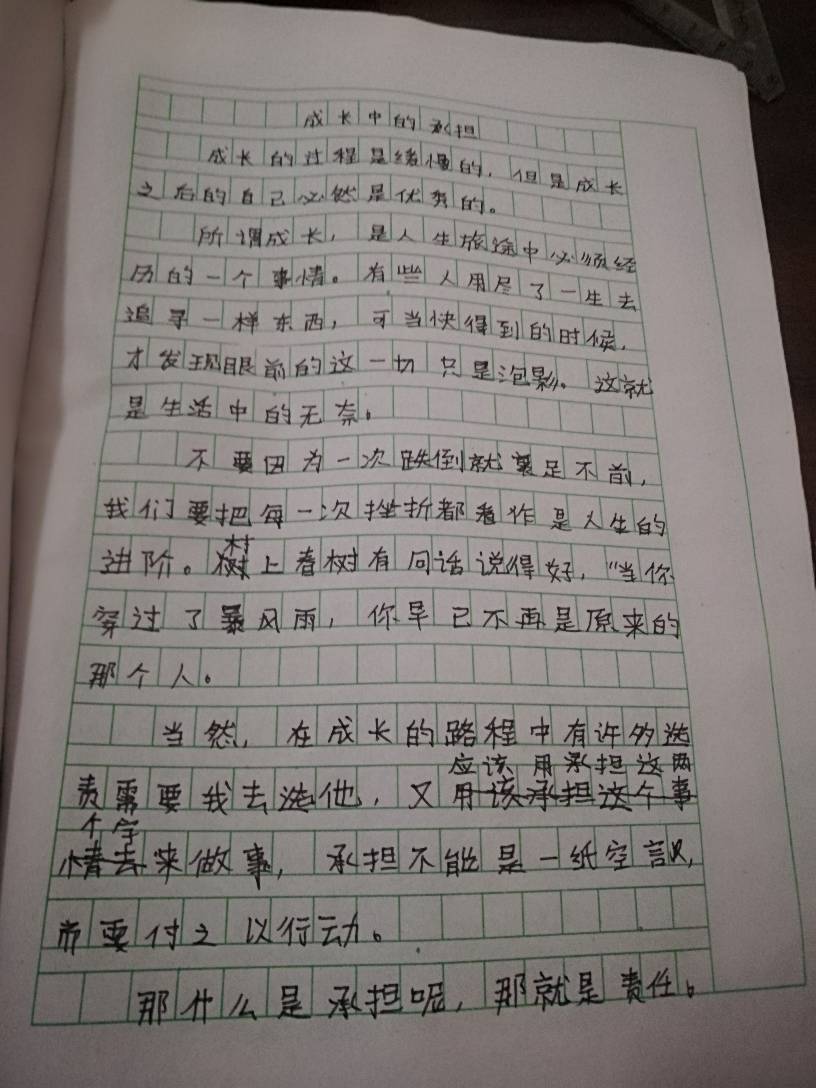 成长中的承担
成长的过程是缓慢的，但是成长
之后的自己必然是优秀的。
所谓成长，是人生旅途中必须经
历的一个事情。有些人用尽了一生去
追寻一样东西，可当快得到的时候，
才发现眼前的这一切只是泡影。这就
是生活中的无奈。
不要因为一次跌倒就裹足不前，
我们要把每一次挫折都看作是人生的
进阶。村上春树有句话说得好，“当你
穿过了暴风雨，你早已不再是原来的
那个人。
当然，在成长的路程中有许多选
应该用承担这两
责需要我去选他，又用该承担这个事
个字
情去来做事，承担不能是一纸空谈，
而要付之以行动。
那什么是承担呢，那就是责任。